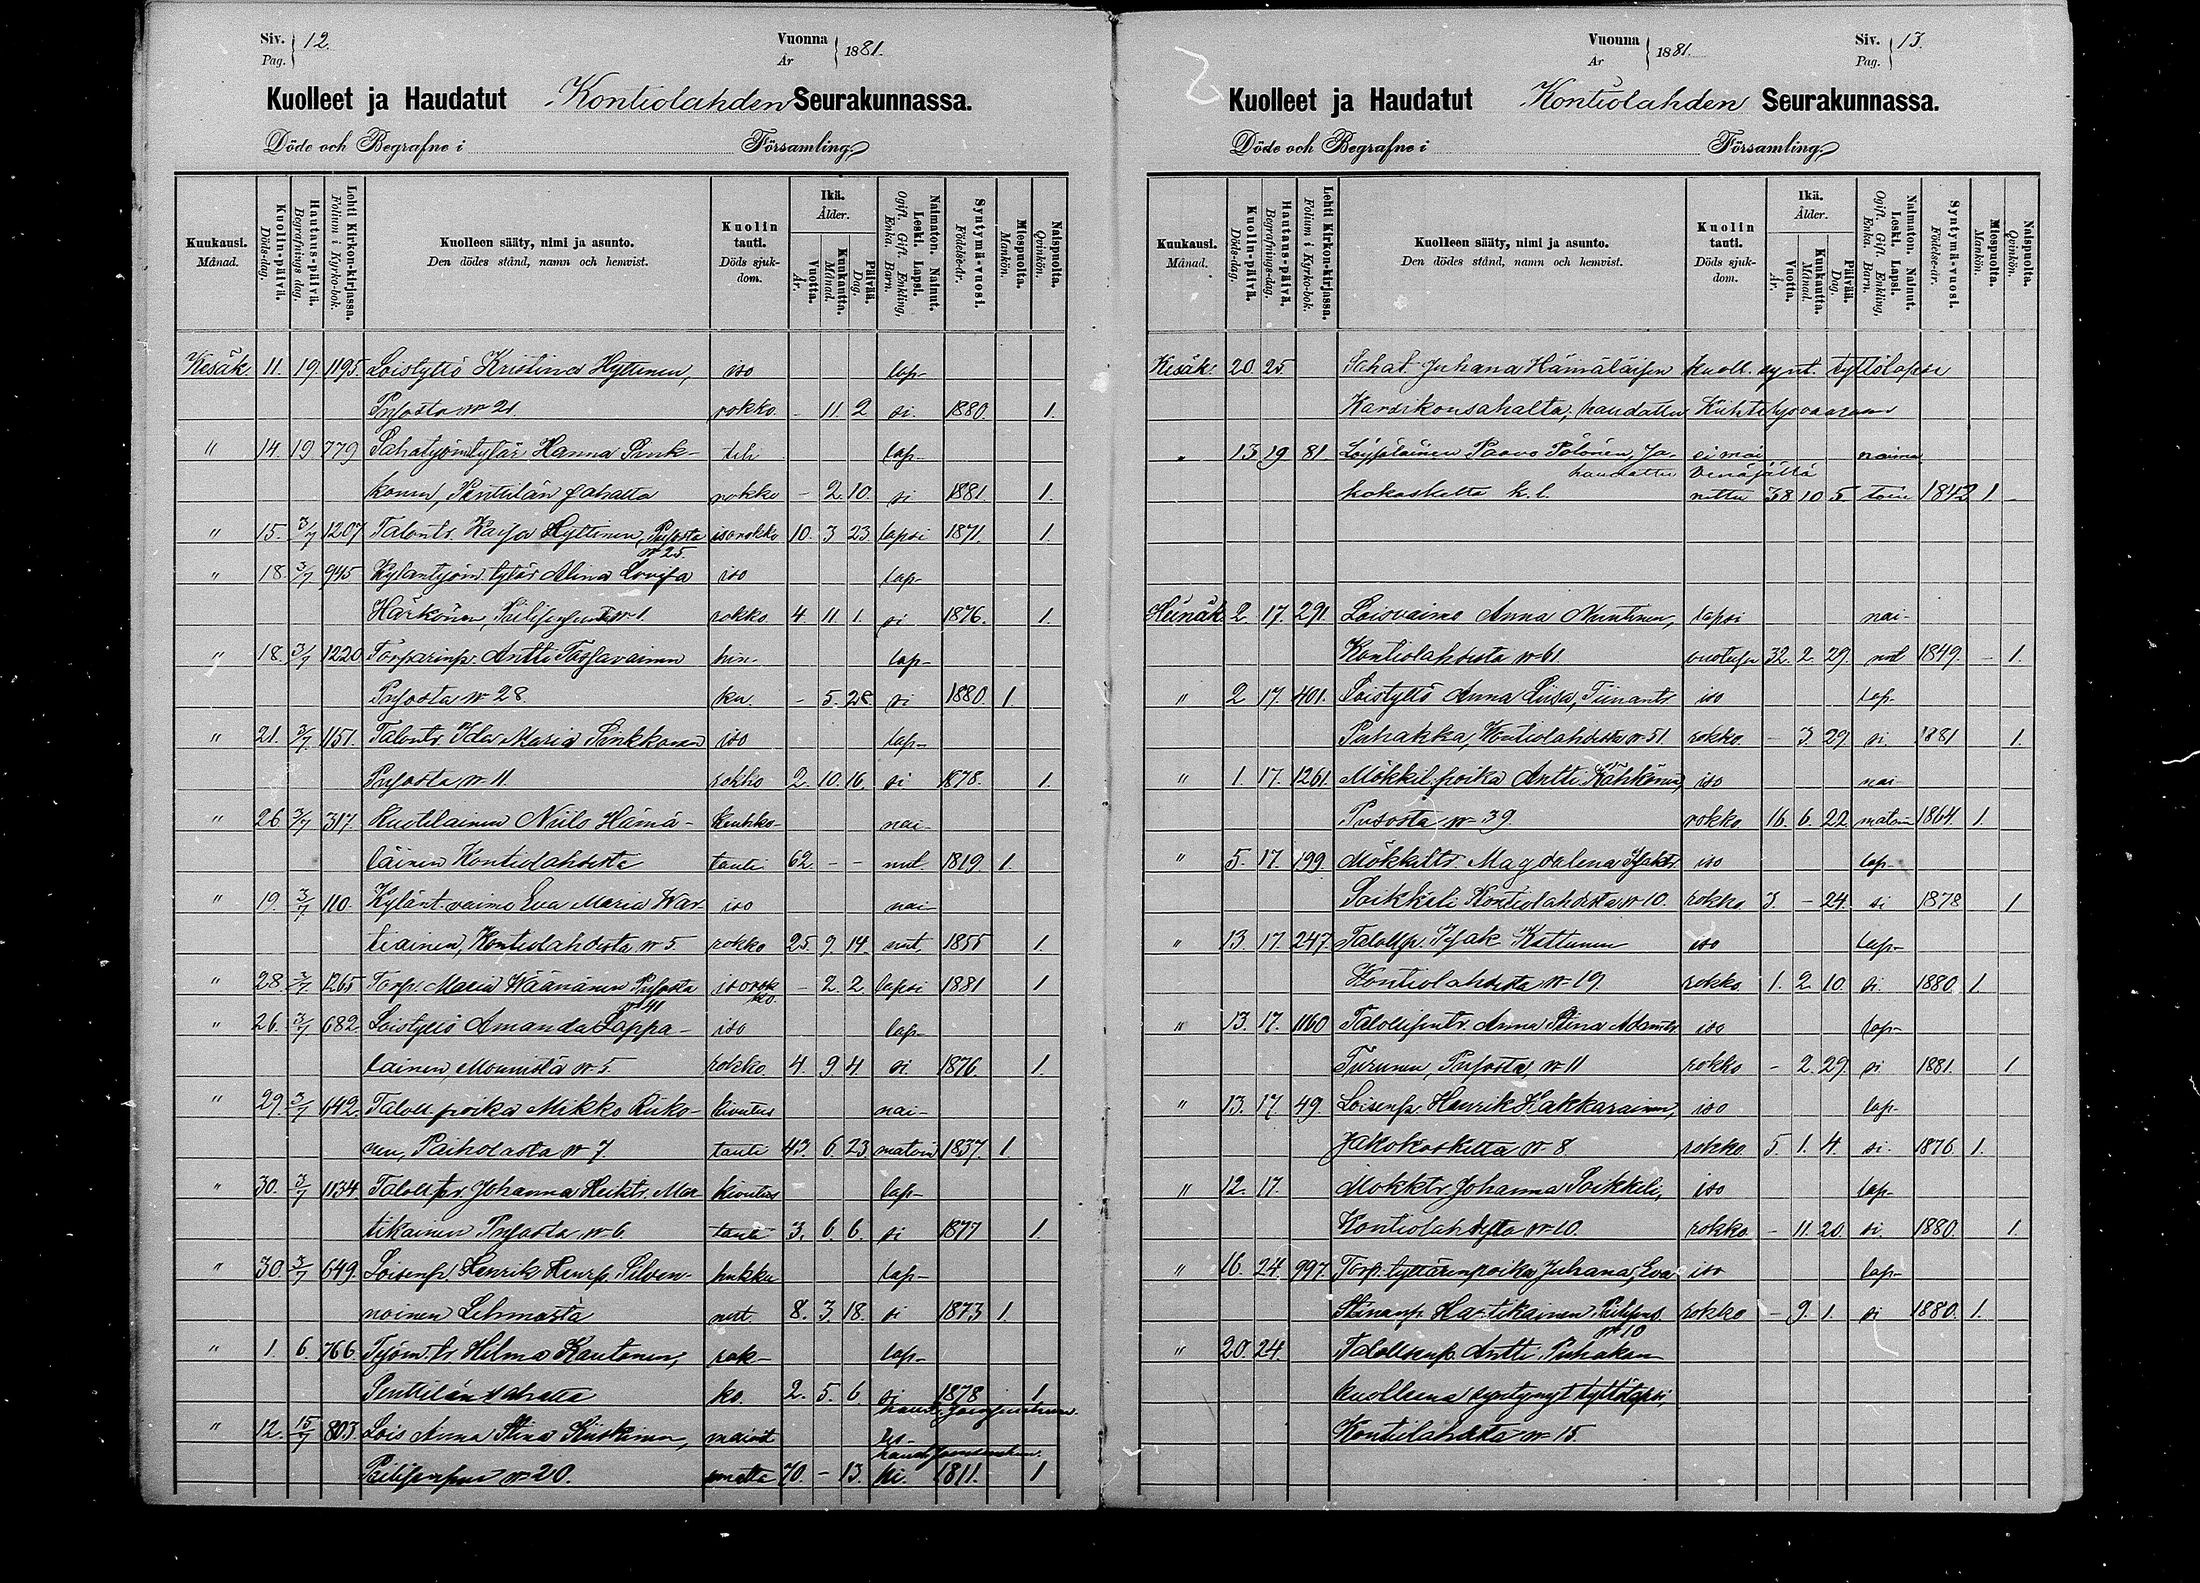 Siv. Pag. 12. Vuonna År 1881.
Kuolleet ja Haudatut Kontiolahden Seurakunnassa.
Döde och Begrafne i Församling.
Kuukausi. Månad. Kuolin-päivä. Döds-dag. Hautaus-päivä. Begrafnings dag. Lehti Kirkon-kirjassa. Folium i Kyrko-bok. Kuolleen sääty, nimi ja asunto. Den dödes stånd, namn och hemvist. Kuolin tauti. Döds sjukdom. Ikä. Ålder. Vuotta. År. Kuukautta. Månad. Päivää. Dag. Naimaton. Nainut. Leski. Lapsi. Ogift. Gift. Enkling, Enka. Barn. Syntymä-vuosi. Födelse-år. Miespuolta. Mankön. Naispuolta. Qvinkön.
Kesäk. 11. 19. 1195. Loistyttö Kristina Hyttinen, iso lap-
Pusosta № 21. rokko. - 11. 2 si. 1880. 1.
" 14. 19. 779 Hanna Pink- lap-
konen, Penttilän sahalta rokko - 2. 10. si 1881. 1.
" 15. 3/7 1207 Talontr. Kaisa Hyttinen, Pusosta № 25. isorokko 10. 3 23 lapsi 1871. 1.
" 18. 3/7 945 Kyläntyöm. tytär Alina Lovisa iso lap-
Härkönen, № 1. rokko. 4. 11. 1. si 1876. 1.
" 18. 3/7 1220 Torparinp. Antti hin- lap-
Pusosta № 28. ku. - 5. 28. si 1880. 1.
" 21. 3/7 1151. Talontr. Ida Maria Sinkkonen iso lap-
Pusosta № 11. rokko 2. 10. 16. si 1878. 1.
" 26. 3/7 317. Ruotilainen Niilo Hämä- keuhko- nai-
läinen Kontiolahdesta tauti 62. - - nut. 1819. 1.
" 19. 3/7 110. Kylänt. vaimo Eva Maria War- iso nai-
tiainen, Kontiolahdesta № 5 rokko 25. 9. 14. nut. 1855 1.
" 28. 3/7 1265 Torp. Maria Wäänänen Pusosta № 41 isorokko. - 2. 2. lapsi 1881 1
" 26. 3/7 682. Loistyttö Amanda Lappa- iso lap-
lainen, № 5. rokko. 4. 9 4. si. 1876. 1.
" 29. 3/7 Taloll. poika Mikko Riiko- kivutus nai-
nen, Paiholasta № 7. tauti 43. 6. 23. matoin 1837. 1.
" 30. 3/7 1134. Johanna Heiktr. Mar- kivutus lap-
tikainen Pusosta № 6 tauti 3. 6. 6. si 1877 1.
" 30. 3/7 649. Loisenp. Henrik Henrp. Silven- hukku lap-
noinen Lehmosta nut. 8. 3. 18. si 1873 1.
" 1. 6. 766. Työm. tr. Hilma Kautonen, rok- lap-
Penttilän sahalta ko. 2. 5. 6. si 1878 1
" 12. 15/7 803. Lois Anna Stina Kiiskinen, les-
№ 20. 70. - 13. ki. 1811. 1
Vuonna År 1881. Siv. Pag. 13.
Kuolleet ja Haudatut Kontiolahden Seurakunnassa.
Döde och Begrafne i Församling.
Kuukausi. Månad. Kuolin-päivä. Döds-dag. Hautaus-päivä. Begrafnings-dag. Lehti Kirkon-kirjassa. Folium i Kyrko-bok. Kuolleen sääty, nimi ja asunto. Den dödes stånd, namn och hemvist. Kuolin tauti. Döds sjukdom. Ikä. Ålder. Vuotta. År. Kuukautta. Månad. Päivää. Dag. Naimaton. Nainut. Leski. Lapsi. Ogift. Gift. Enkling, Enka. Barn. Syntymä-vuosi. Födelse-år. Miespuolta. Mankön. Naispuolta. Qvinkön.
Kesäk. 20. 25. Juhana Hämäläisen kuoll. synt. tyttölapsi
haudattu
" 13 19 81. Paavo Pölönen, Ja- naima
haudattu Venäjällä
kokoskelta k. l. 38 10 5. toin 1842 1. -
Heinäk. 2. 17. 291. Loisvaimo Anna Nuutinen, lapsi nai-
Kontiolahdesta № 61. 32. 2. 29. nut 1849. - 1.
" 2. 17. 401. Loistyttö Anna Liisa, Tiinantr. iso lap-
Puhakka, Kontiolahdesta № 51. rokko. - 3. 29. si. 1881 1.
" 1. 17. 1261. Mökkil. poika Antti Kähkönen, iso nai
Pusosta № 39. rokko. 16. 6. 22. matoin 1864. 1.
" 5. 17. 199. Mökkiltr. Magdalena Isaktr. iso lap-
Soikkeli Kontiolahdesta № 10. rokko. 3. - 24. si 1878 1
" 13. 17. 247. Talollp. Isak Kettunen iso lap-
Kontiolahdesta № 19. rokko. 1. 2. 10. si. 1880. 1.
" 13. 17. 1160 Talollisentr. Anna Stina Adamtr. iso lap-
Turunen, Pusosta № 11 rokko - 2. 29. si 1881. 1
" 13. 17. 49. Loisenp. Henrik Kakkarainen, iso lap-
Jakokoskelta № 8. rokko. 5. 1. 4. si. 1876. 1.
" 12. 17. Mökktr. Johanna Soikkeli, iso lap-
Kontiolahdesta № 10. rokko. - 11. 20. si. 1880. 1.
" 16. 24. 997. Torp. tyttärenpoika Juhana, Eva iso lap-
Stinanp. Hartikainen № 10 rokko - 9. 1. si 1880. 1.
" 20. 24. Talollisenp. Antti Puhakan
kuolleena syntynyt tyttölapsi,
Kontiolahdesta № 15.